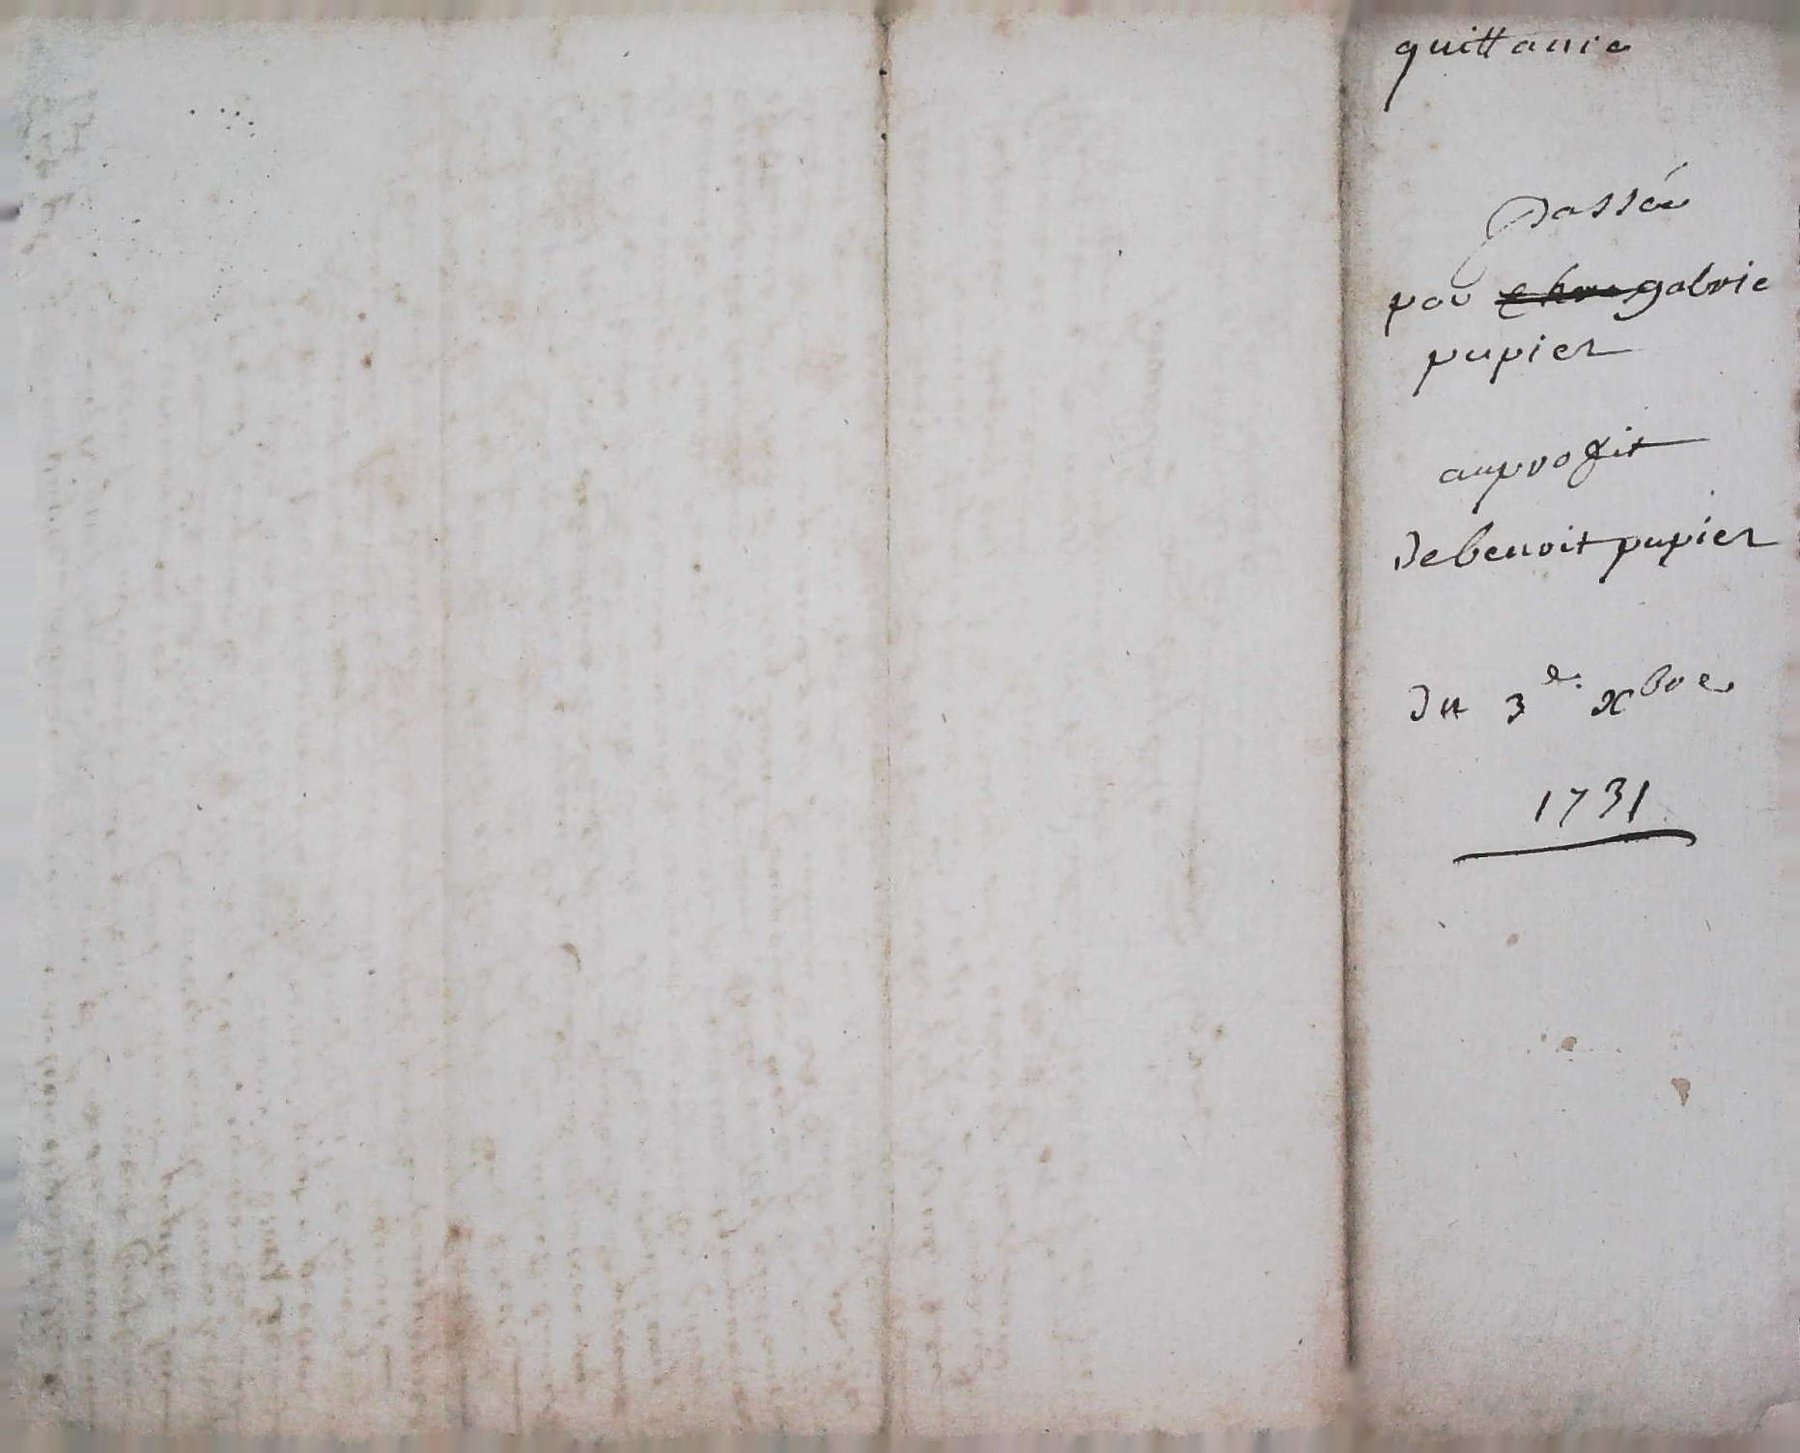 quittance
passée
par gabrie
pupier
au profit
de benoit pupier
du 3e. xbre
1731